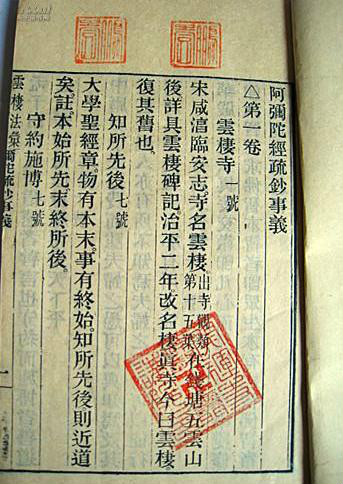 阿彌陀經疏鈔事義
△第一卷
雲棲寺 一號
宋咸淳臨安志寺名雲棲 出寺觀類第十五葉 在錢塘五雲山
後詳具雲棲碑記治平二年改名棲眞寺今曰雲棲
復其舊也
知所先後 七號
大學聖經章物有本末事有終始知所先後則近道
矣註本始所先末終所後
守約施博 七號
雲棲法彙 彌陀疏鈔事義 一